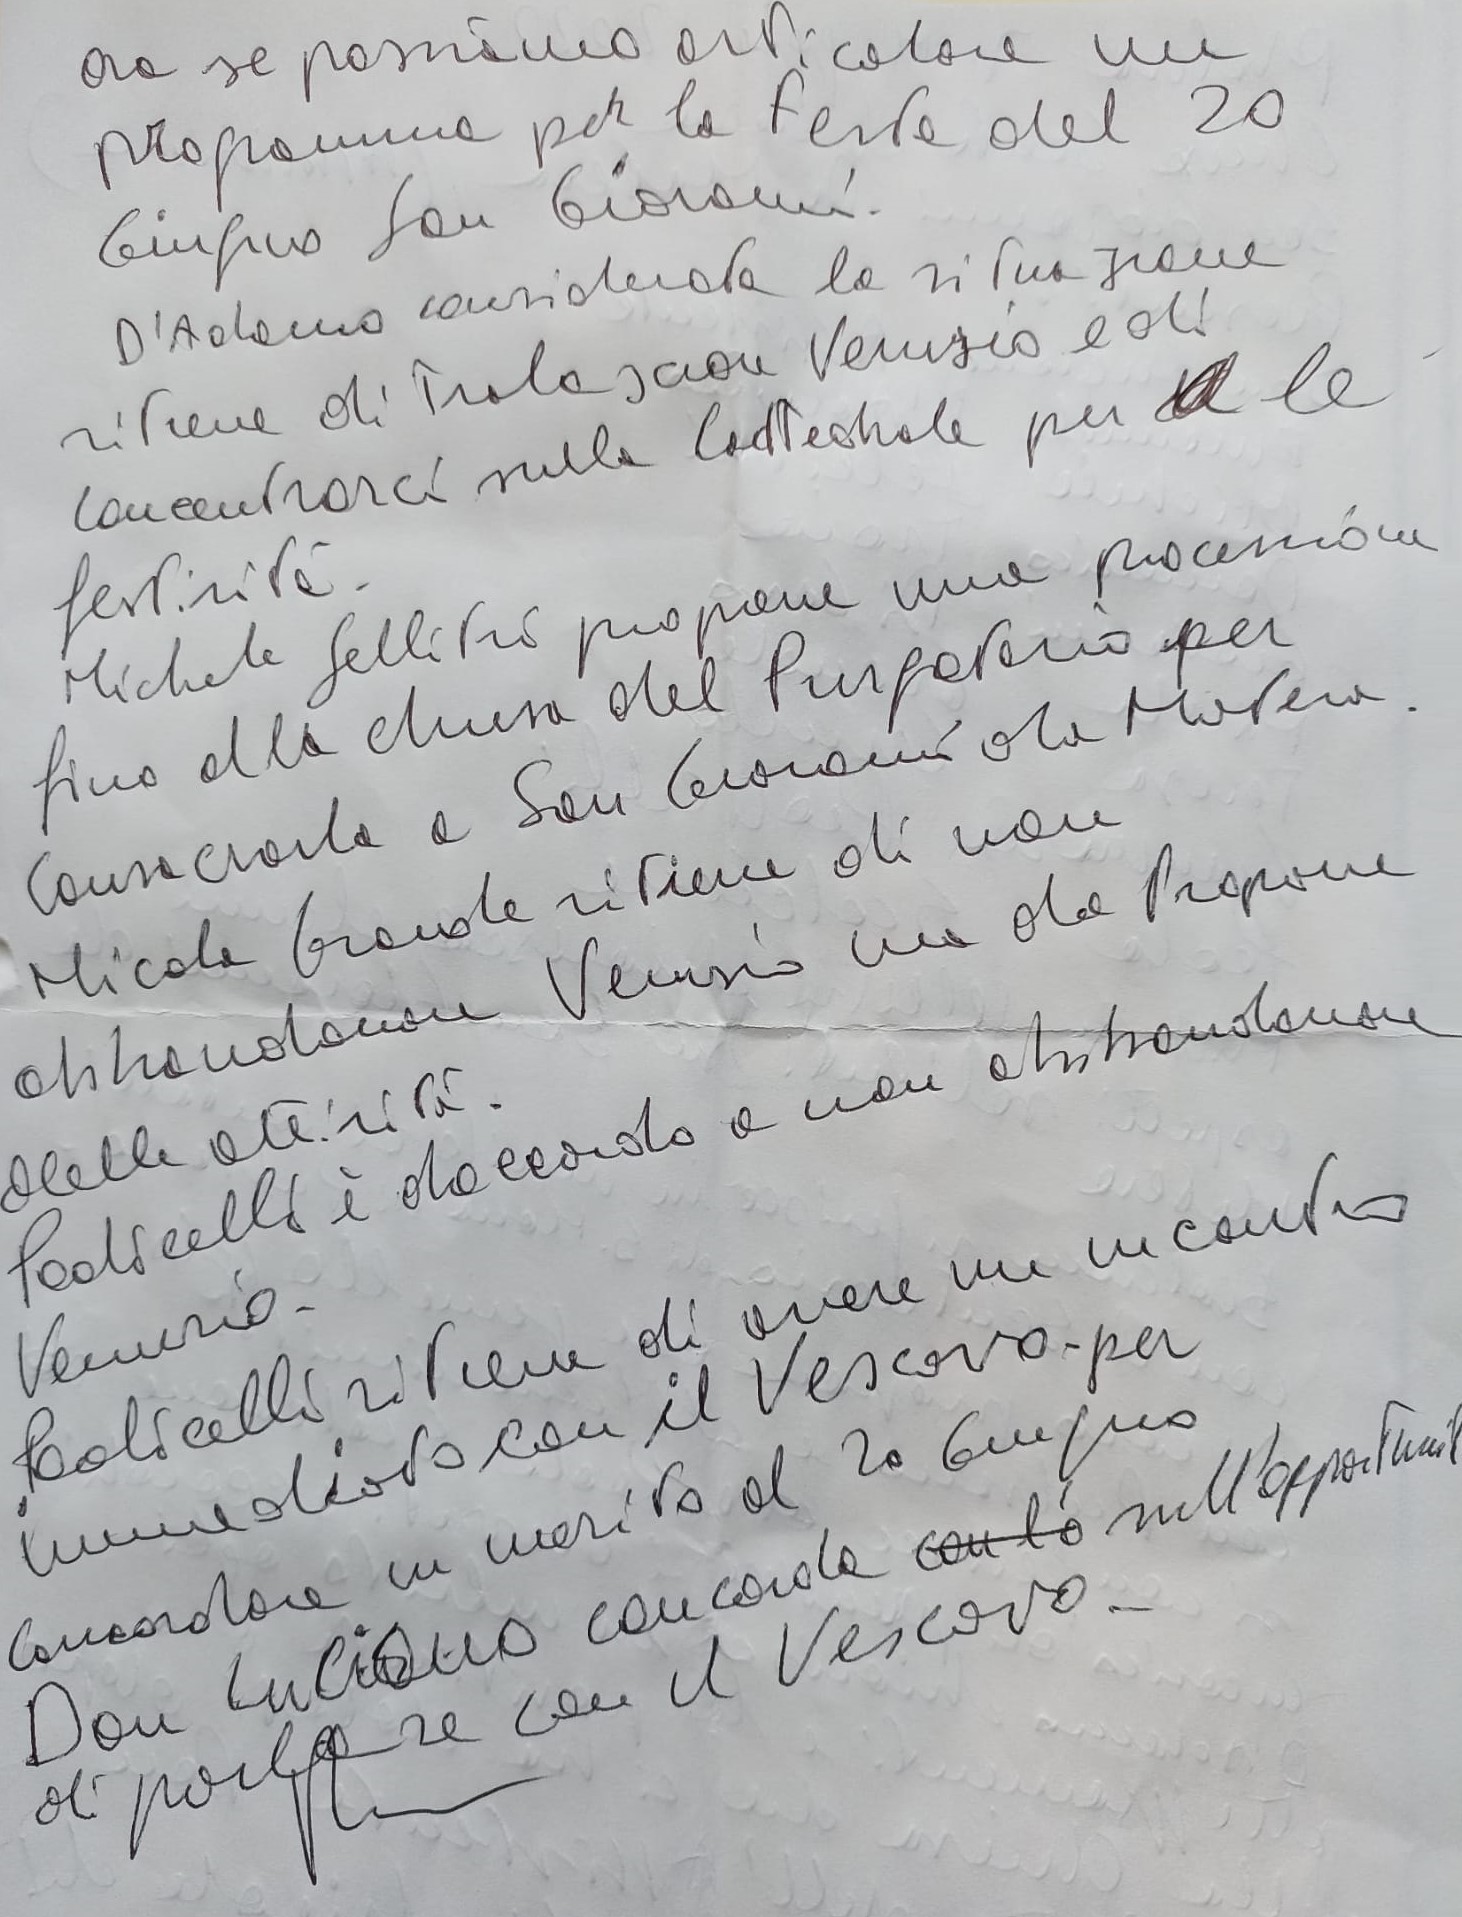 ora se possiamo articolare un
programma per la Festa del 20
Giugno San Giovanni.
D'Adamo considerata la situazione
ritiene di Tralasciare Venusio e di
Concentrarci sulla Cattedrale per le
festività.
Michele Gellitri propone una processione
fino alla chiesa del Purgatorio per
Consacrarla a San Giovanni da Matera.
Nicola Grande ritiene di non
abbandonare Venusio ma da Propone
delle attività.
Padicelli è daccordo a non abbandonare
Venusio-
Padicelli ritiene di avere un incontro
immediato con il Vescovo-per
Concordare in merito al 20 Giugno
Don Luciano concorda con lo sull'opportunit
di parlare con il Vescovo-